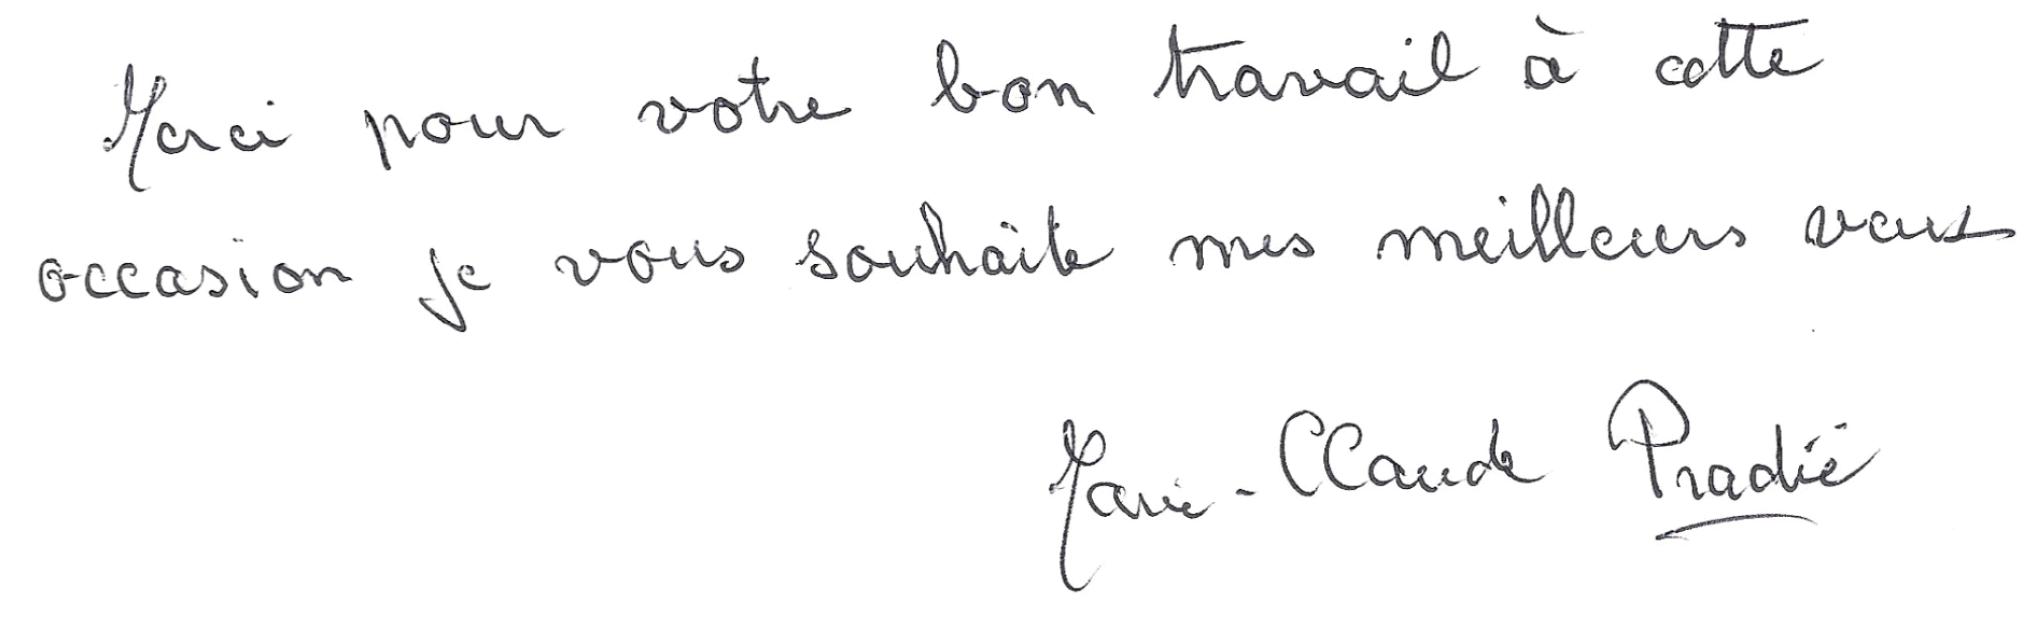 Merci pour votre bon travail à cette
occasion je vous souhaite mes meilleurs veux
Marie-Claude Pradié